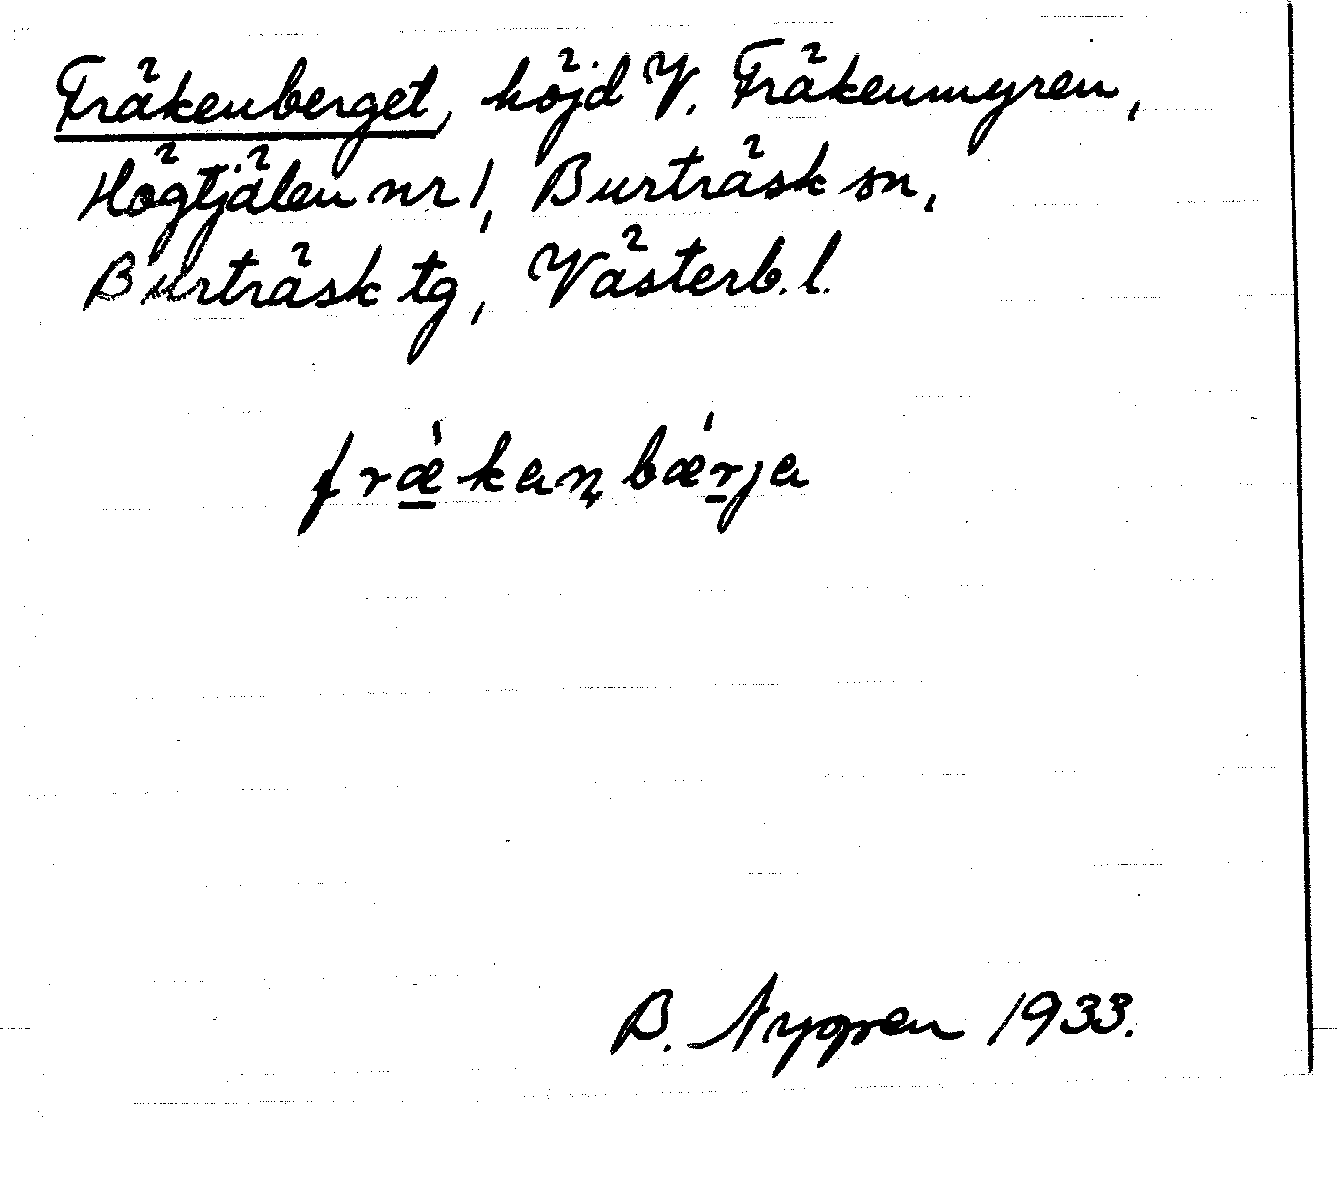 Fräkenberget, höjd V. Fräkenmyren,
Högtjälen nr 1, Burträsk sn,
Burträsk tg, Västerb. l.
frǽkanbǽrja
B. Nygren 1933.